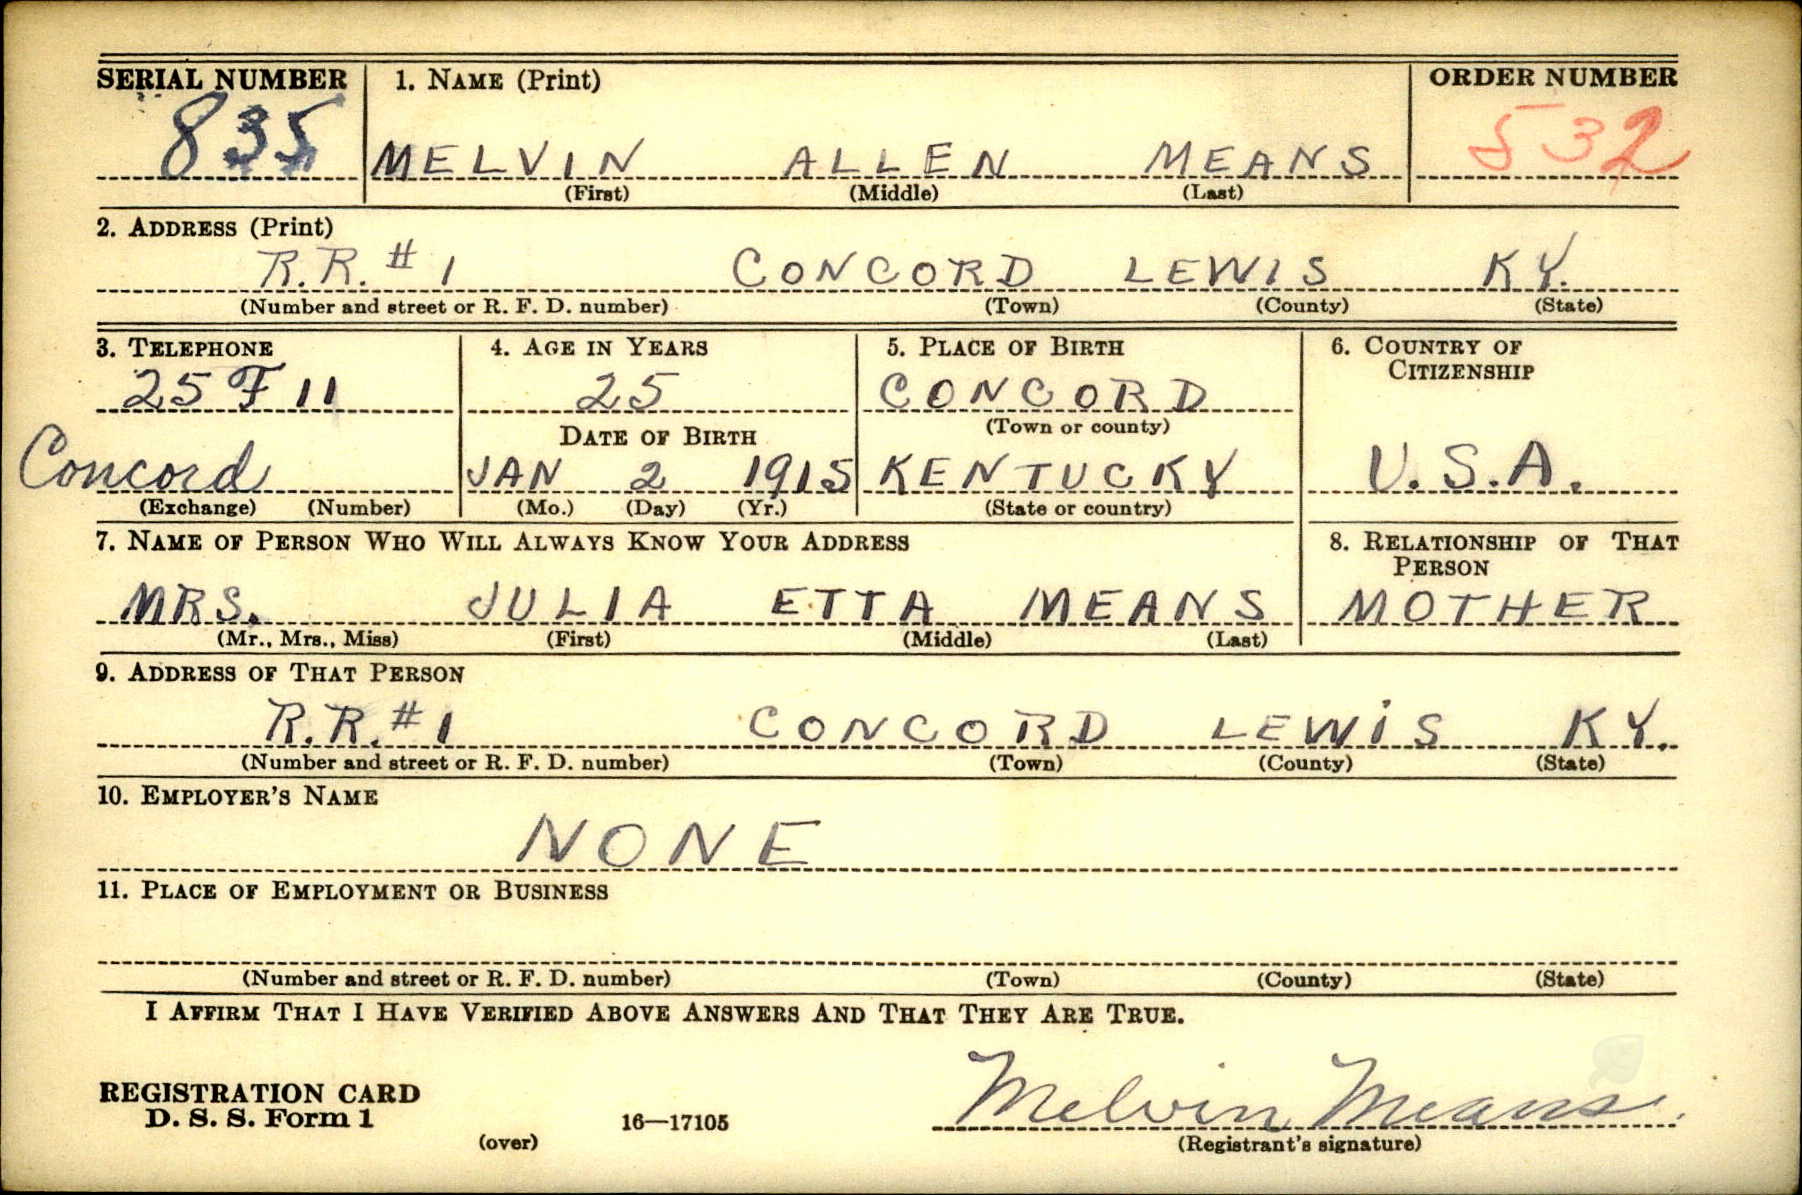 SERIAL NUMBER 1. NAME (Print) ORDER NUMBER
835 MELVIN ALLEN MEANS 532
(First) (Middle) (Last)
2. ADDRESS (Print)
R.R. # 1 CONCORD LEWIS KY.
(Number and street or R. F. D. number) (Town) (County) (State)
3. TELEPHONE 4. AGE IN YEARS 5. PLACE OF BIRTH 6. COUNTRY OF
CITIZENSHIP
25 F 11 25 CONCORD
DATE OF BIRTH (Town or county)
Concord JAN 2 1915 KENTUCKY U.S.A.
(Exchange) (Number) (Mo.) (Day) (Yr.) (State or country)
7. NAME OF PERSON WHO WILL ALWAYS KNOW YOUR ADDRESS 8. RELATIONSHIP OF THAT
PERSON
MRS. JULIA ETTA MEANS MOTHER
(Mr., Mrs., Miss) (First) (Middle) (Last)
9. ADDRESS OF THAT PERSON
R.R. # 1 CONCORD LEWIS KY.
(Number and street or R. F. D. number) (Town) (County) (State)
10. EMPLOYER'S NAME
NONE
11. PLACE OF EMPLOYMENT OR BUSINESS
(Number and street or R. F. D. number) (Town) (County) (State)
I AFFIRM THAT I HAVE VERIFIED ABOVE ANSWERS AND THAT THEY ARE TRUE.
REGISTRATION CARD
D. S. S. Form 1 16—17105 Melvin Means
(over) (Registrant's signature)